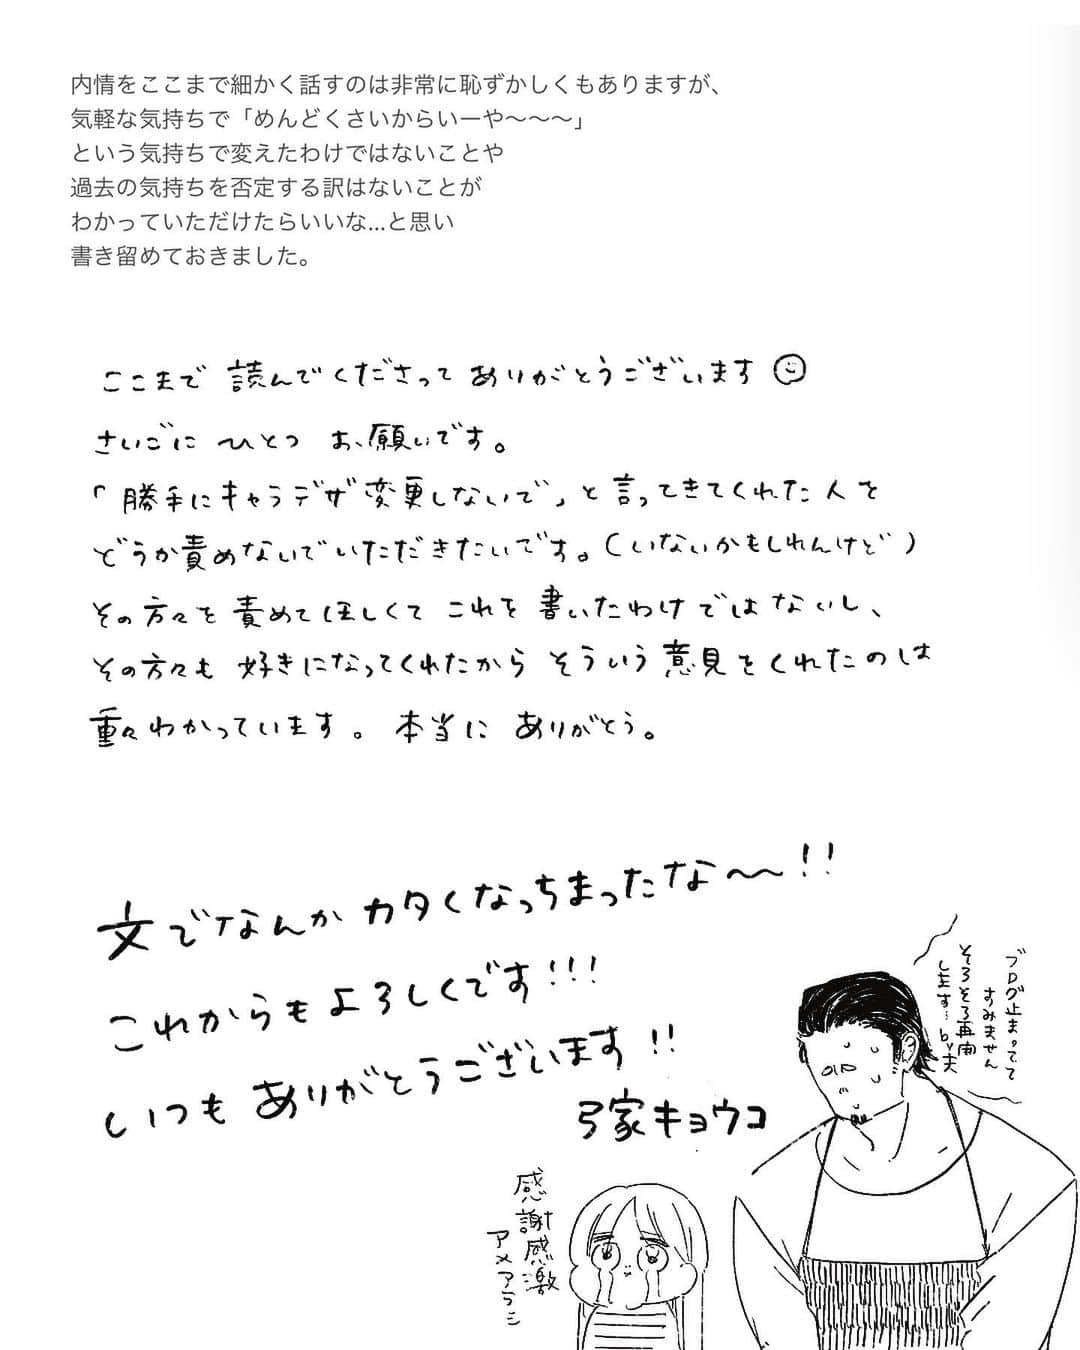 内情をここまで細かく話すのは非常に恥ずかしくもありますが、
気軽な気持ちで「めんどくさいからいーや〜〜〜」
という気持ちで変えたわけではないことや
過去の気持ちを否定する訳はないことが
わかっていただけたらいいな...と思い
書き留めておきました。
ここまで 読んでくださって ありがとうございます
さいごに ひとつ お願いです。
「勝手にキャラデザ変更しないで」と言ってきてくれた人を
どうか責めないでいただきたいです。(いないかもしれんけど)
その方々を責めてほしくてこれを書いたわけではないし、
その方々も好きになってくれたからそういう意見をくれたのは
重々わかっています。本当に ありがとう。
文でなんかカタくなっちまったな〜〜!!
これからもよろしくです!!!
いつもありがとうございます!!
弓家キョウコ
ブログ止まってて
すみません
そろそろ再開
します… by夫
感謝感激
アメアラシ